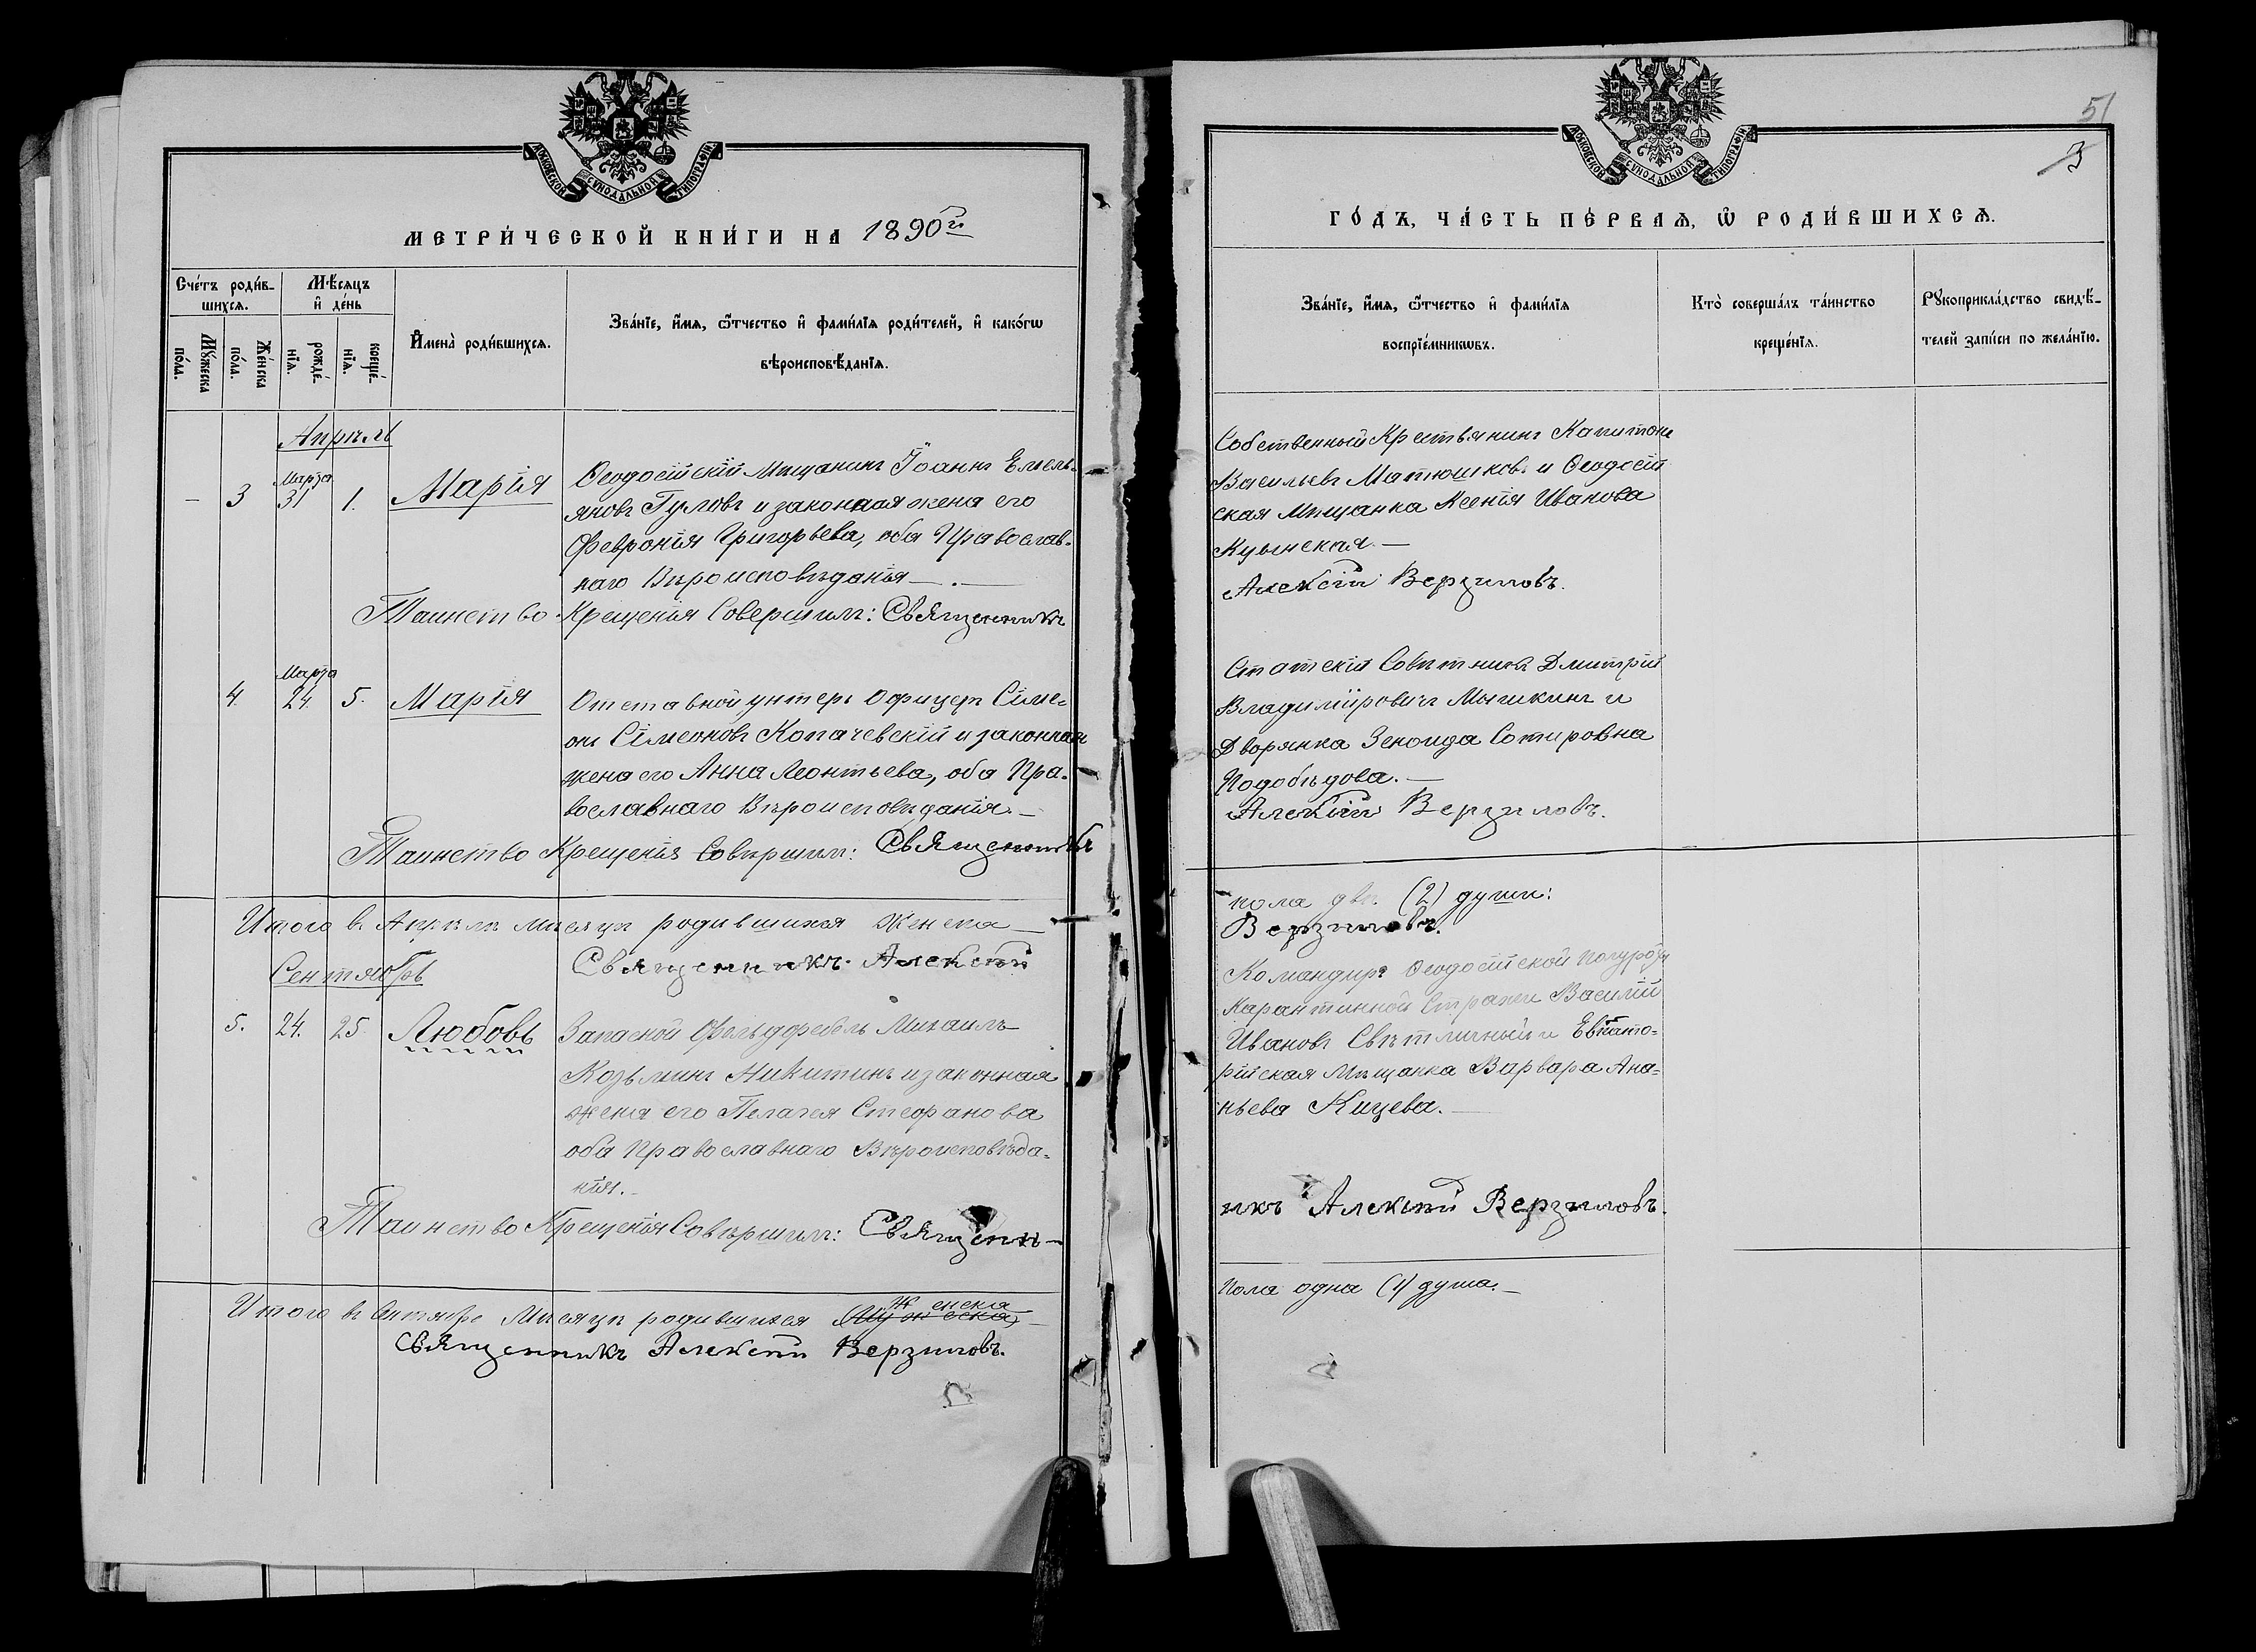 МОСКОВСКОЙ СѴНОДАЛЬНОЙ ТИПОГРАФІИ
МЕТРИ́ЧЕСКОЙ КНИ́ГИ НА 1890й
Сче́тъ роди́в-
шихсѧ.
Мѣ́сѧцъ
и҆ де́нь
Мꙋ́жеска
по́ла.
Же́нска
по́ла.
рожде́-
нїѧ.
креще́-
нїѧ.
И҆мена̀ роди́вшихсѧ.
Зва́нїе, и҆́мѧ, ѻ҆́тчество и҆ фами́лїѧ роди́телей, и҆ како́гѡ
вѣроисповѣ́данїѧ.
Апрѣль
- 3 Марта 31 1. Марія
Ѳеодосійскій Мѣщанинъ Іоаннъ Емель-
яновъ Гуловъ и законная жена его
Февронія Григорьева, оба Православ-
наго Вѣроисповѣданія —.—
Таинство Крещенія Совершилъ: Священникъ
4. Марта 24. 5. Марія
Отставной унтеръ офицеръ Сѵме-
онъ Сѵмеоновъ Копачевскій и законная
жена его Анна Леонтьева, оба Пра-
вославнаго Вѣроисповѣданія.—
Таинство Крещенія Совершилъ: Священникъ
Итого въ Апрѣлѣ Мѣсяцѣ родившихся Женска —
Священникъ Алексій
Сентябрь
5. 24. 25. Любовь
Запасной Фельдфебель Михаилъ
Козьминъ Никитинъ и законная
жена его Пелагея Стефанова
оба Православнаго Вѣроисповѣда-
нія.-
Таинство Крещенія Совершилъ: Священн-
Итого въ Мѣсяцѣ родившихся (Мужеска) Женска —
Священникъ Алексій Верзиловъ.
51
3
МОСКОВСКОЙ СѴНОДАЛЬНОЙ ТИПОГРАФІИ
ГО́ДЪ, ЧА́СТЬ ПЕ́РВАѦ, Ѡ҆ РОДИ́ВШИХСѦ.
Зва́нїе, и҆́мѧ, ѻ҆́тчество и҆ фами́лїѧ
воспрїе́мникѡвъ.
Кто̀ соверша́лъ та́инство
креще́нїѧ.
Рꙋкоприкла́дство свидѣ́-
телей за́писи по жела́нїю.
Собственный Крестьянинъ Капитонъ
Васильевъ Матюшковъ и Ѳеодосій
ская Мѣщанка Ксенія Иванова
Алексій Верзиловъ.
Статскій Совѣтникъ Дмитрій
Владиміровичъ Мышкинъ и
Дворянка Зеноида Сотировна
Подобѣдова.—
Алексій Верзиловъ.
пола двѣ (2) души:
Верзиловъ.
Командиръ Ѳеодосійской полуроты
Карантинной Стражи Василій
Ивановъ Свѣтличный и Евпато-
рійская Мѣщанка Варвара Ана-
ньева Кицева.—
икъ Алексій Верзиловъ.
Пола одна (1) душа.—